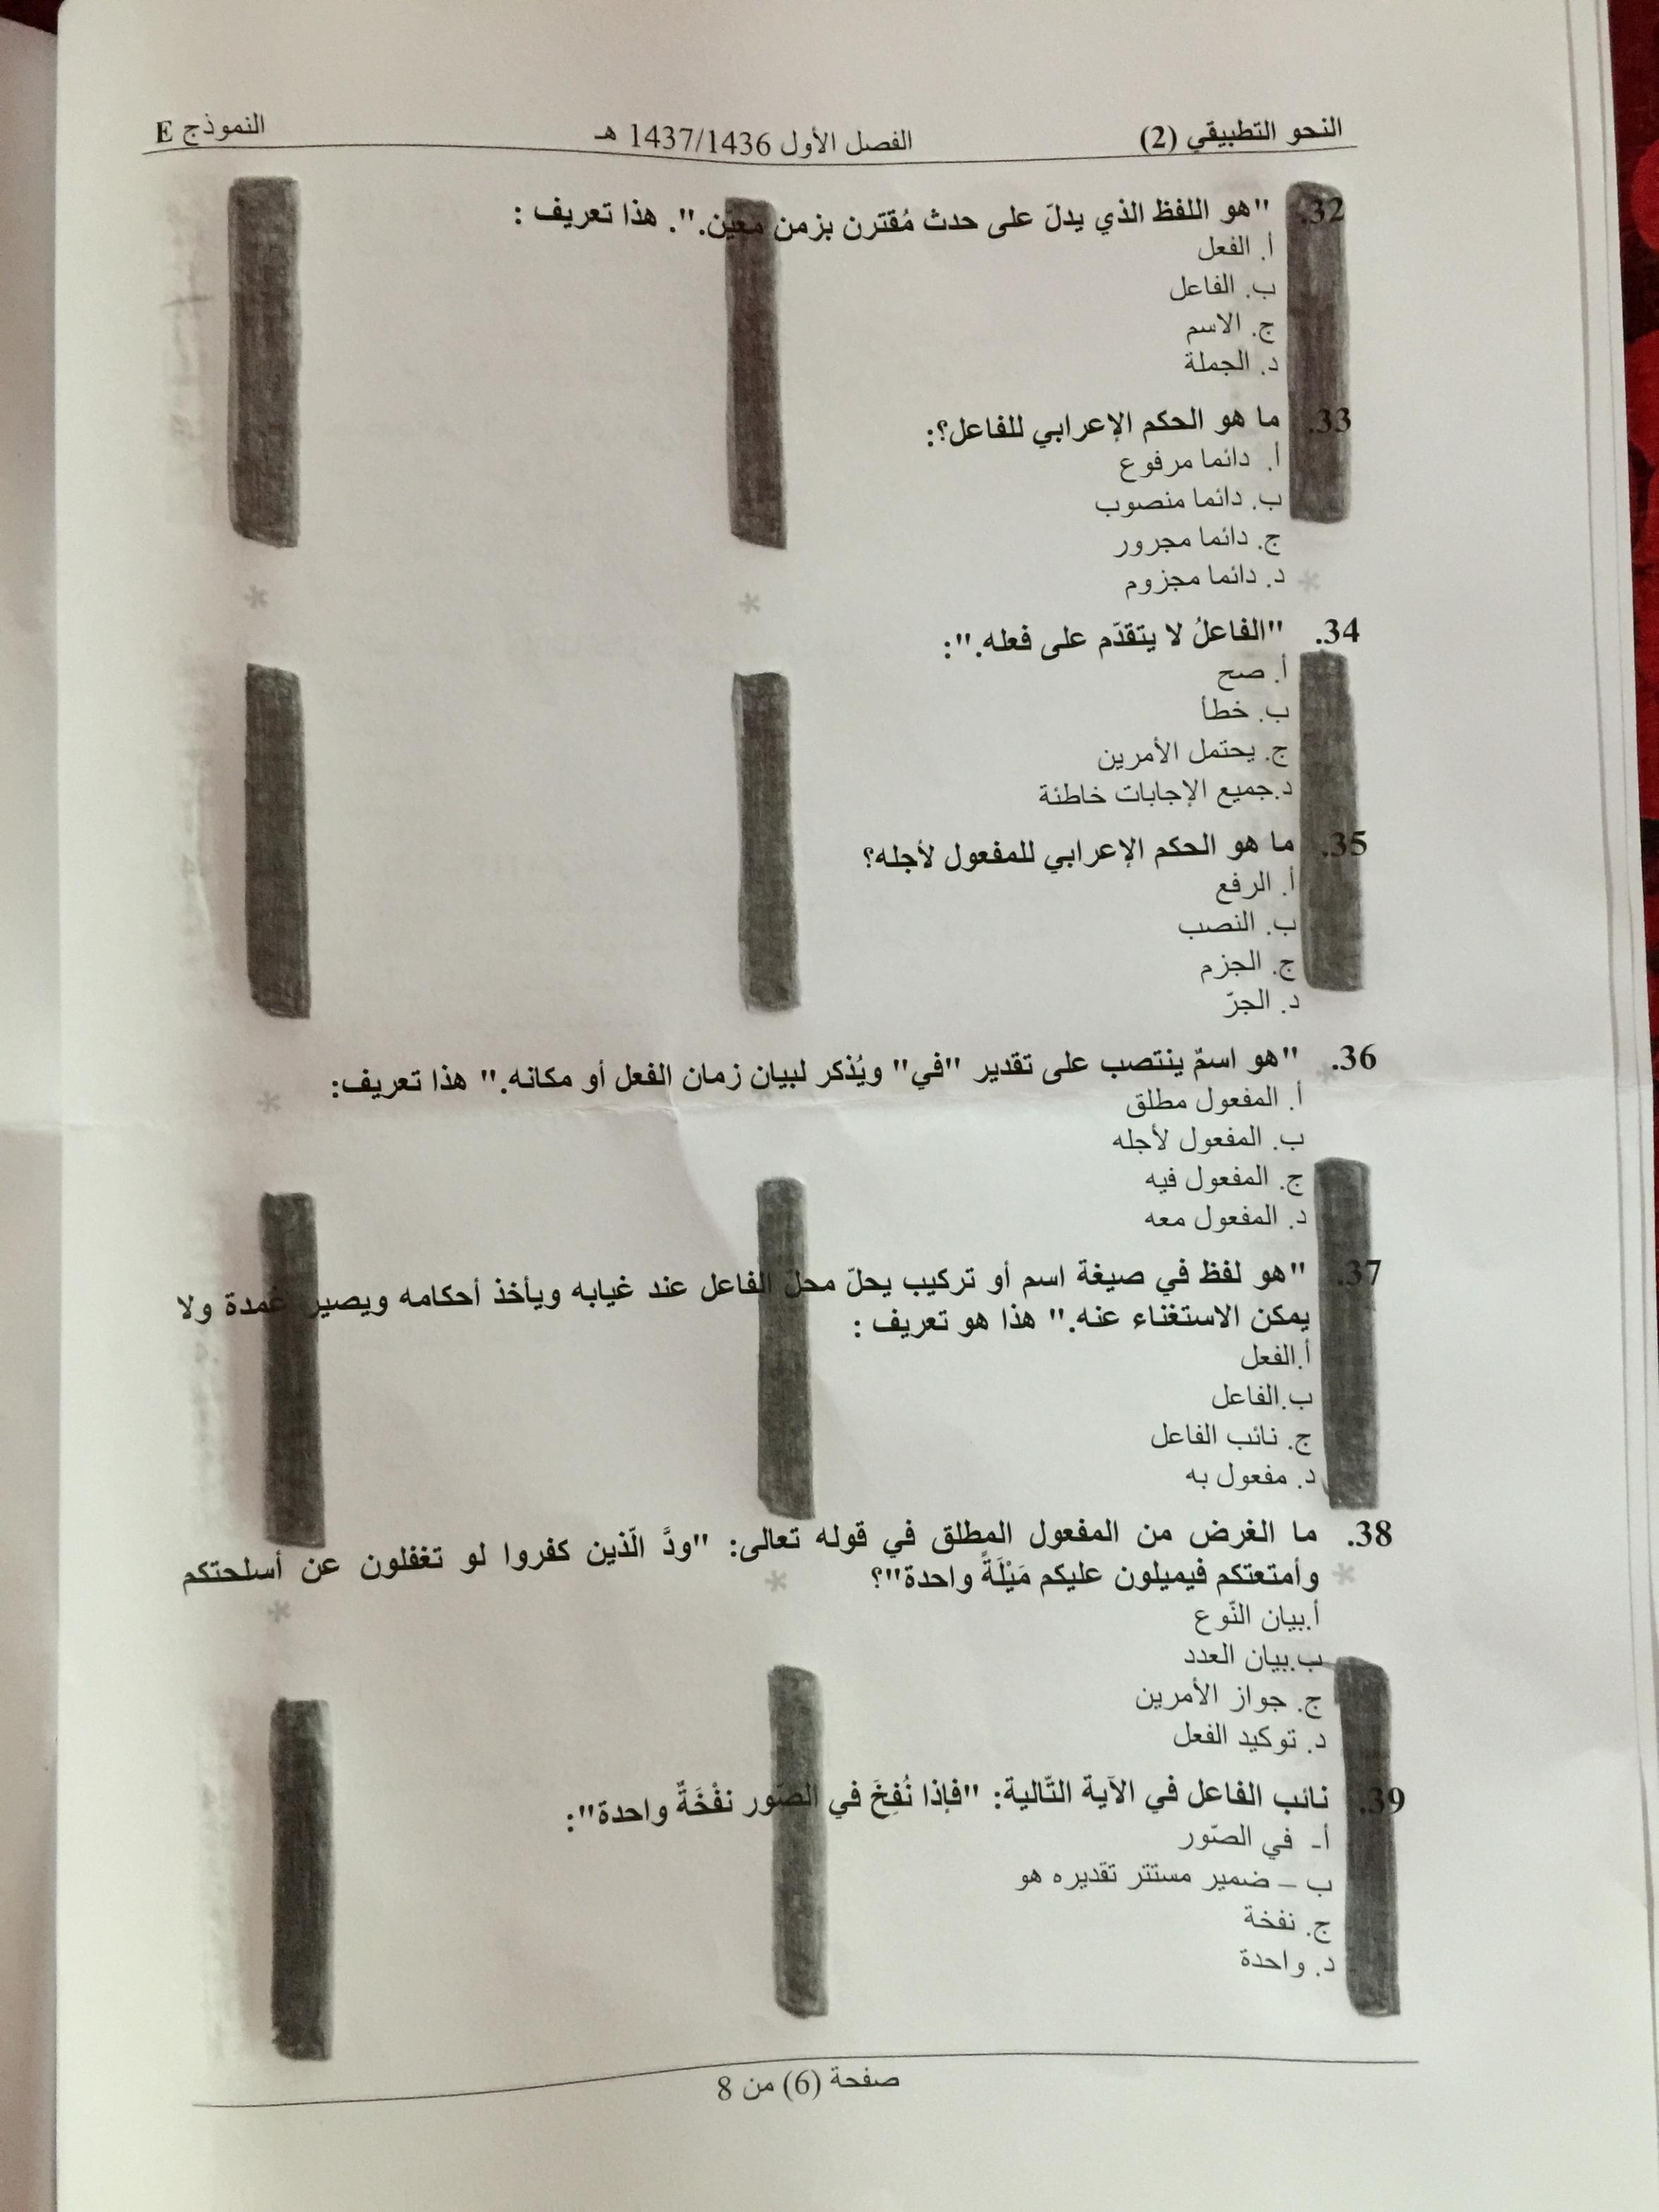 النحو التطبيقي (2) الفصل الأول 1437/1436 هـ النموذج E
32. "هو اللفظ الذي يدلّ على حدث مُقترن بزمن معيّن.". هذا تعريف :
أ. الفعل
ب. الفاعل
ج. الاسم
د. الجملة
33. ما هو الحكم الإعرابي للفاعل؟:
أ. دائما مرفوع
ب. دائما منصوب
ج. دائما مجرور
د. دائما مجزوم
34. "الفاعلُ لا يتقدّم على فعله.":
أ. صح
ب. خطأ
ج. يحتمل الأمرين
د.جميع الإجابات خاطئة
35. ما هو الحكم الإعرابي للمفعول لأجله؟
أ. الرفع
ب. النصب
ج. الجزم
د. الجرّ
36. "هو اسمٌ ينتصب على تقدير "في" ويُذكر لبيان زمان الفعل أو مكانه." هذا تعريف:
أ. المفعول مطلق
ب. المفعول لأجله
ج. المفعول فيه
د. المفعول معه
37. "هو لفظ في صيغة اسم أو تركيب يحلّ محلّ الفاعل عند غيابه ويأخذ أحكامه ويصير عُمدة ولا
يمكن الاستغناء عنه." هذا هو تعريف :
أ.الفعل
ب.الفاعل
ج. نائب الفاعل
د. مفعول به
38. ما الغرض من المفعول المطلق في قوله تعالى: "ودَّ الّذين كفروا لو تغفلون عن أسلحتكم
وأمتعتكم فيميلون عليكم مَيْلَةً واحدة"؟
أ.بيان النّوع
ب.بيان العدد
ج. جواز الأمرين
د. توكيد الفعل
39. نائب الفاعل في الآية التّالية: "فإذا نُفِخَ في الصّور نفْخَةٌ واحدة":
أ- في الصّور
ب – ضمير مستتر تقديره هو
ج. نفخة
د. واحدة
صفحة (6) من 8